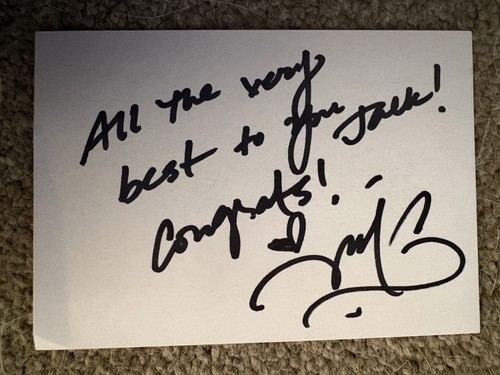 All the very
best to you Jack!
Congrats!